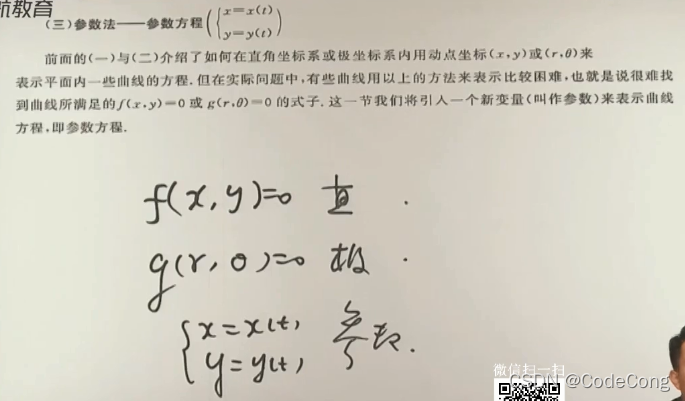 航教育
(三)参数法——参数方程({x=x(t) y=y(t)})
前面的(一)与(二)介绍了如何在直角坐标系或极坐标系内用动点坐标(x,y)或(r,θ)来
表示平面内一些曲线的方程.但在实际问题中,有些曲线用以上的方法来表示比较困难,也就是说很难找
到曲线所满足的f(x,y)=0或g(r,θ)=0的式子.这一节我们将引人一个新变量(叫作参数)来表示曲线
方程,即参数方程.
f(x,y)=0 直.
g(r,θ)=0 极.
{x=x(t),
y=y(t), 参数.
微信扫一扫
CSDN @CodeCong